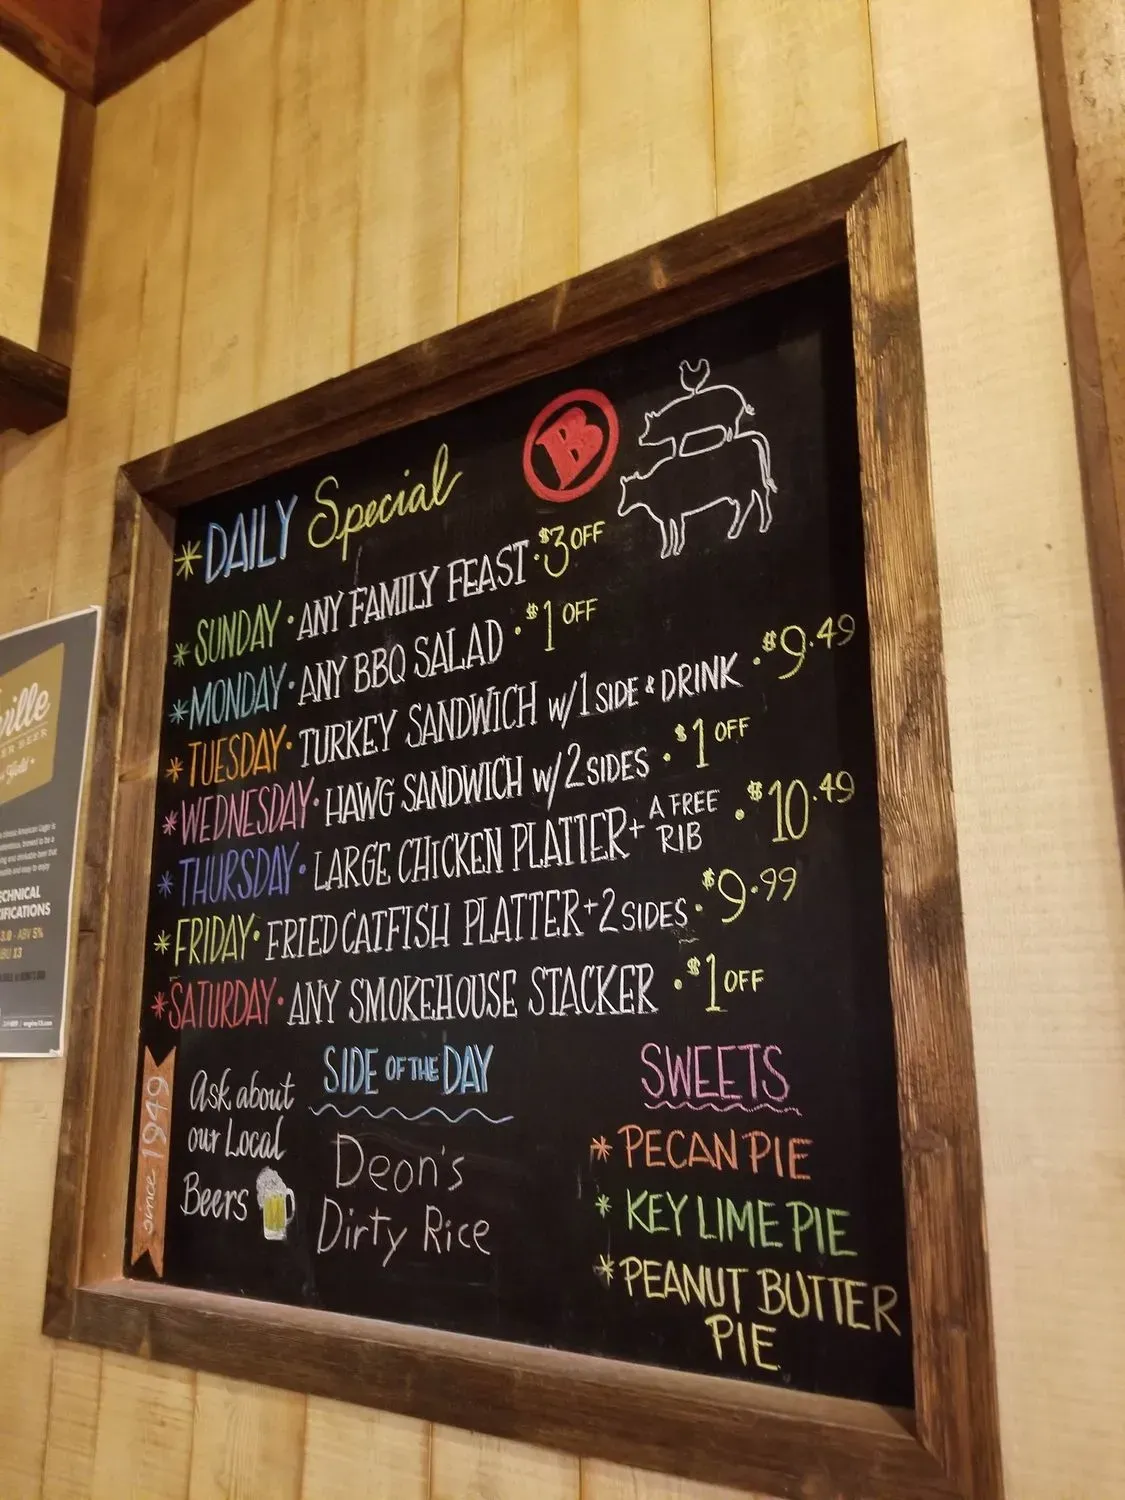 DAILY Special
B
SUNDAY · ANY FAMILY FEAST · $3 OFF
MONDAY · ANY BBQ SALAD · $1 OFF
TUESDAY · TURKEY SANDWICH w/1 SIDE & DRINK · $9.49
WEDNESDAY · HAWG SANDWICH w/2 SIDES · $1 OFF
THURSDAY · LARGE CHICKEN PLATTER + A FREE RIB · $10.49
FRIDAY · FRIED CATFISH PLATTER + 2 SIDES · $9.99
SATURDAY · ANY SMOKEHOUSE STACKER · $1 OFF
since 1949
Ask about
our Local
Beers
SIDE OF THE DAY
Deon's
Dirty Rice
SWEETS
PECAN PIE
KEY LIME PIE
PEANUT BUTTER
PIE
ville
ER BEER
Gold
ECHNICAL
IFICATIONS
3.9 · ABV 5%
IBU 13